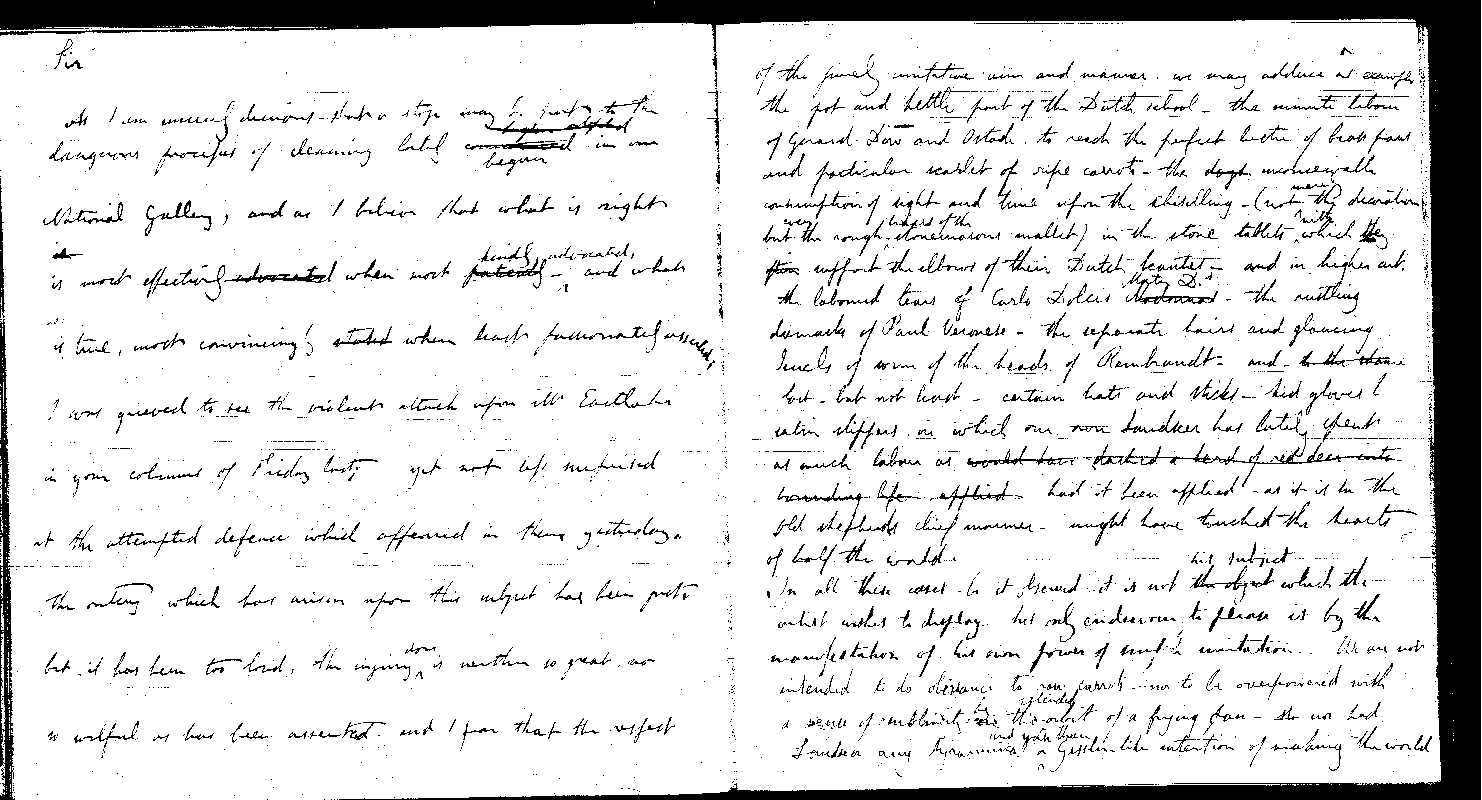 Sir
As I am unusually desirous that a stop may be put to the
dangerous process of cleaning lately begun in our
National Gallery, and as I believe that what is right
is most effectively advocated when most kindly advocated, and what
is true, most convincingly stated when least passionately asserted,
I was grieved to see the violent attack upon Mr Eastlake
in your columns of Friday last; yet not less surprised
at the attempted defence which appeared in them yesterday.
The outcry which has arisen upon this subject has been just,
but it has been too loud, the injury done is neither so great nor
so wilful as has been asserted, and I fear that the respect
of the purely imitative aim and manner. we may adduce as examples
the pot and kettle part of the Dutch school - the minute labour
of Gerard Dow and Ostade. to reach the perfect lustre of brass pans
and particular scarlet of ripe carrots - the inconceivable
consumption of sight and time upon the chiselling - (not the mere decoration
but every the rough traces of the stonemasons mallet) in the stone tablets with which they
often support the elbows of their Dutch beauties - and in higher art.
the laboured tears of Carlo Dolcis Mater D.s Madonnas - the rustling
damasks of Paul Veronese - the separate hairs and glancing
jewels of some of the heads of Rembrandt - and to the
last - but not least - certain hats and sticks - kid gloves &
satin slippers on which our own Landseer has lately spent
as much labour as would have dashed a herd of red deer into
bounding life applied - had it been applied - as it is in the
Old shepherds chief mourner - might have touched the hearts
of half the world.
In all these cases be it observed it is not the object his subject which the
artist wishes to display. his only endeavour to please is by the
manifestation of his own power of imitation. We are not
intended to do obeisance to raw carrots - nor to be overpowered with
a sense of sublimity by the splendid orbit of a frying pan - Nor had
Landseer any a Gessler-like intention of making the world